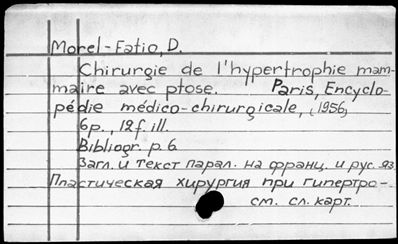 Morel-Fatio, D.
Chirurgie de l'hypertrophie mam-
maire avec ptose. Paris, Encyclo-
pédie médico-chirurgicale, (1956)
6p., 12f. ill.
Bibliogr. p. 6.
Загл. и текст парал. на франц. и рус. яз.
Пластическая хирургия при гипертро-
см. сл. карт.